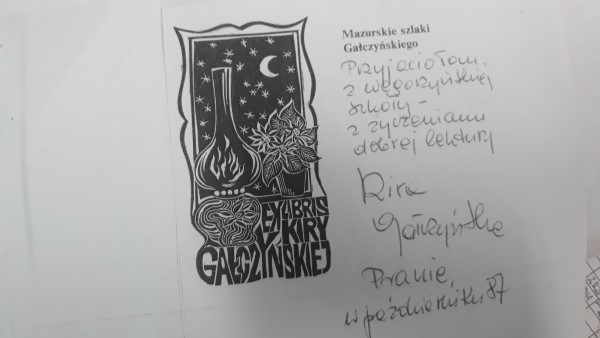 EXLIBRIS
KIRY
GAŁCZYŃSKIEJ
Mazurskie szlaki
Gałczyńskiego
Przyjaciołom
z węgorzyńskiej
szkoły -
z życzeniami
dobrej lektury
Kira
Gałczyńska
Pranie,
w październiku 87